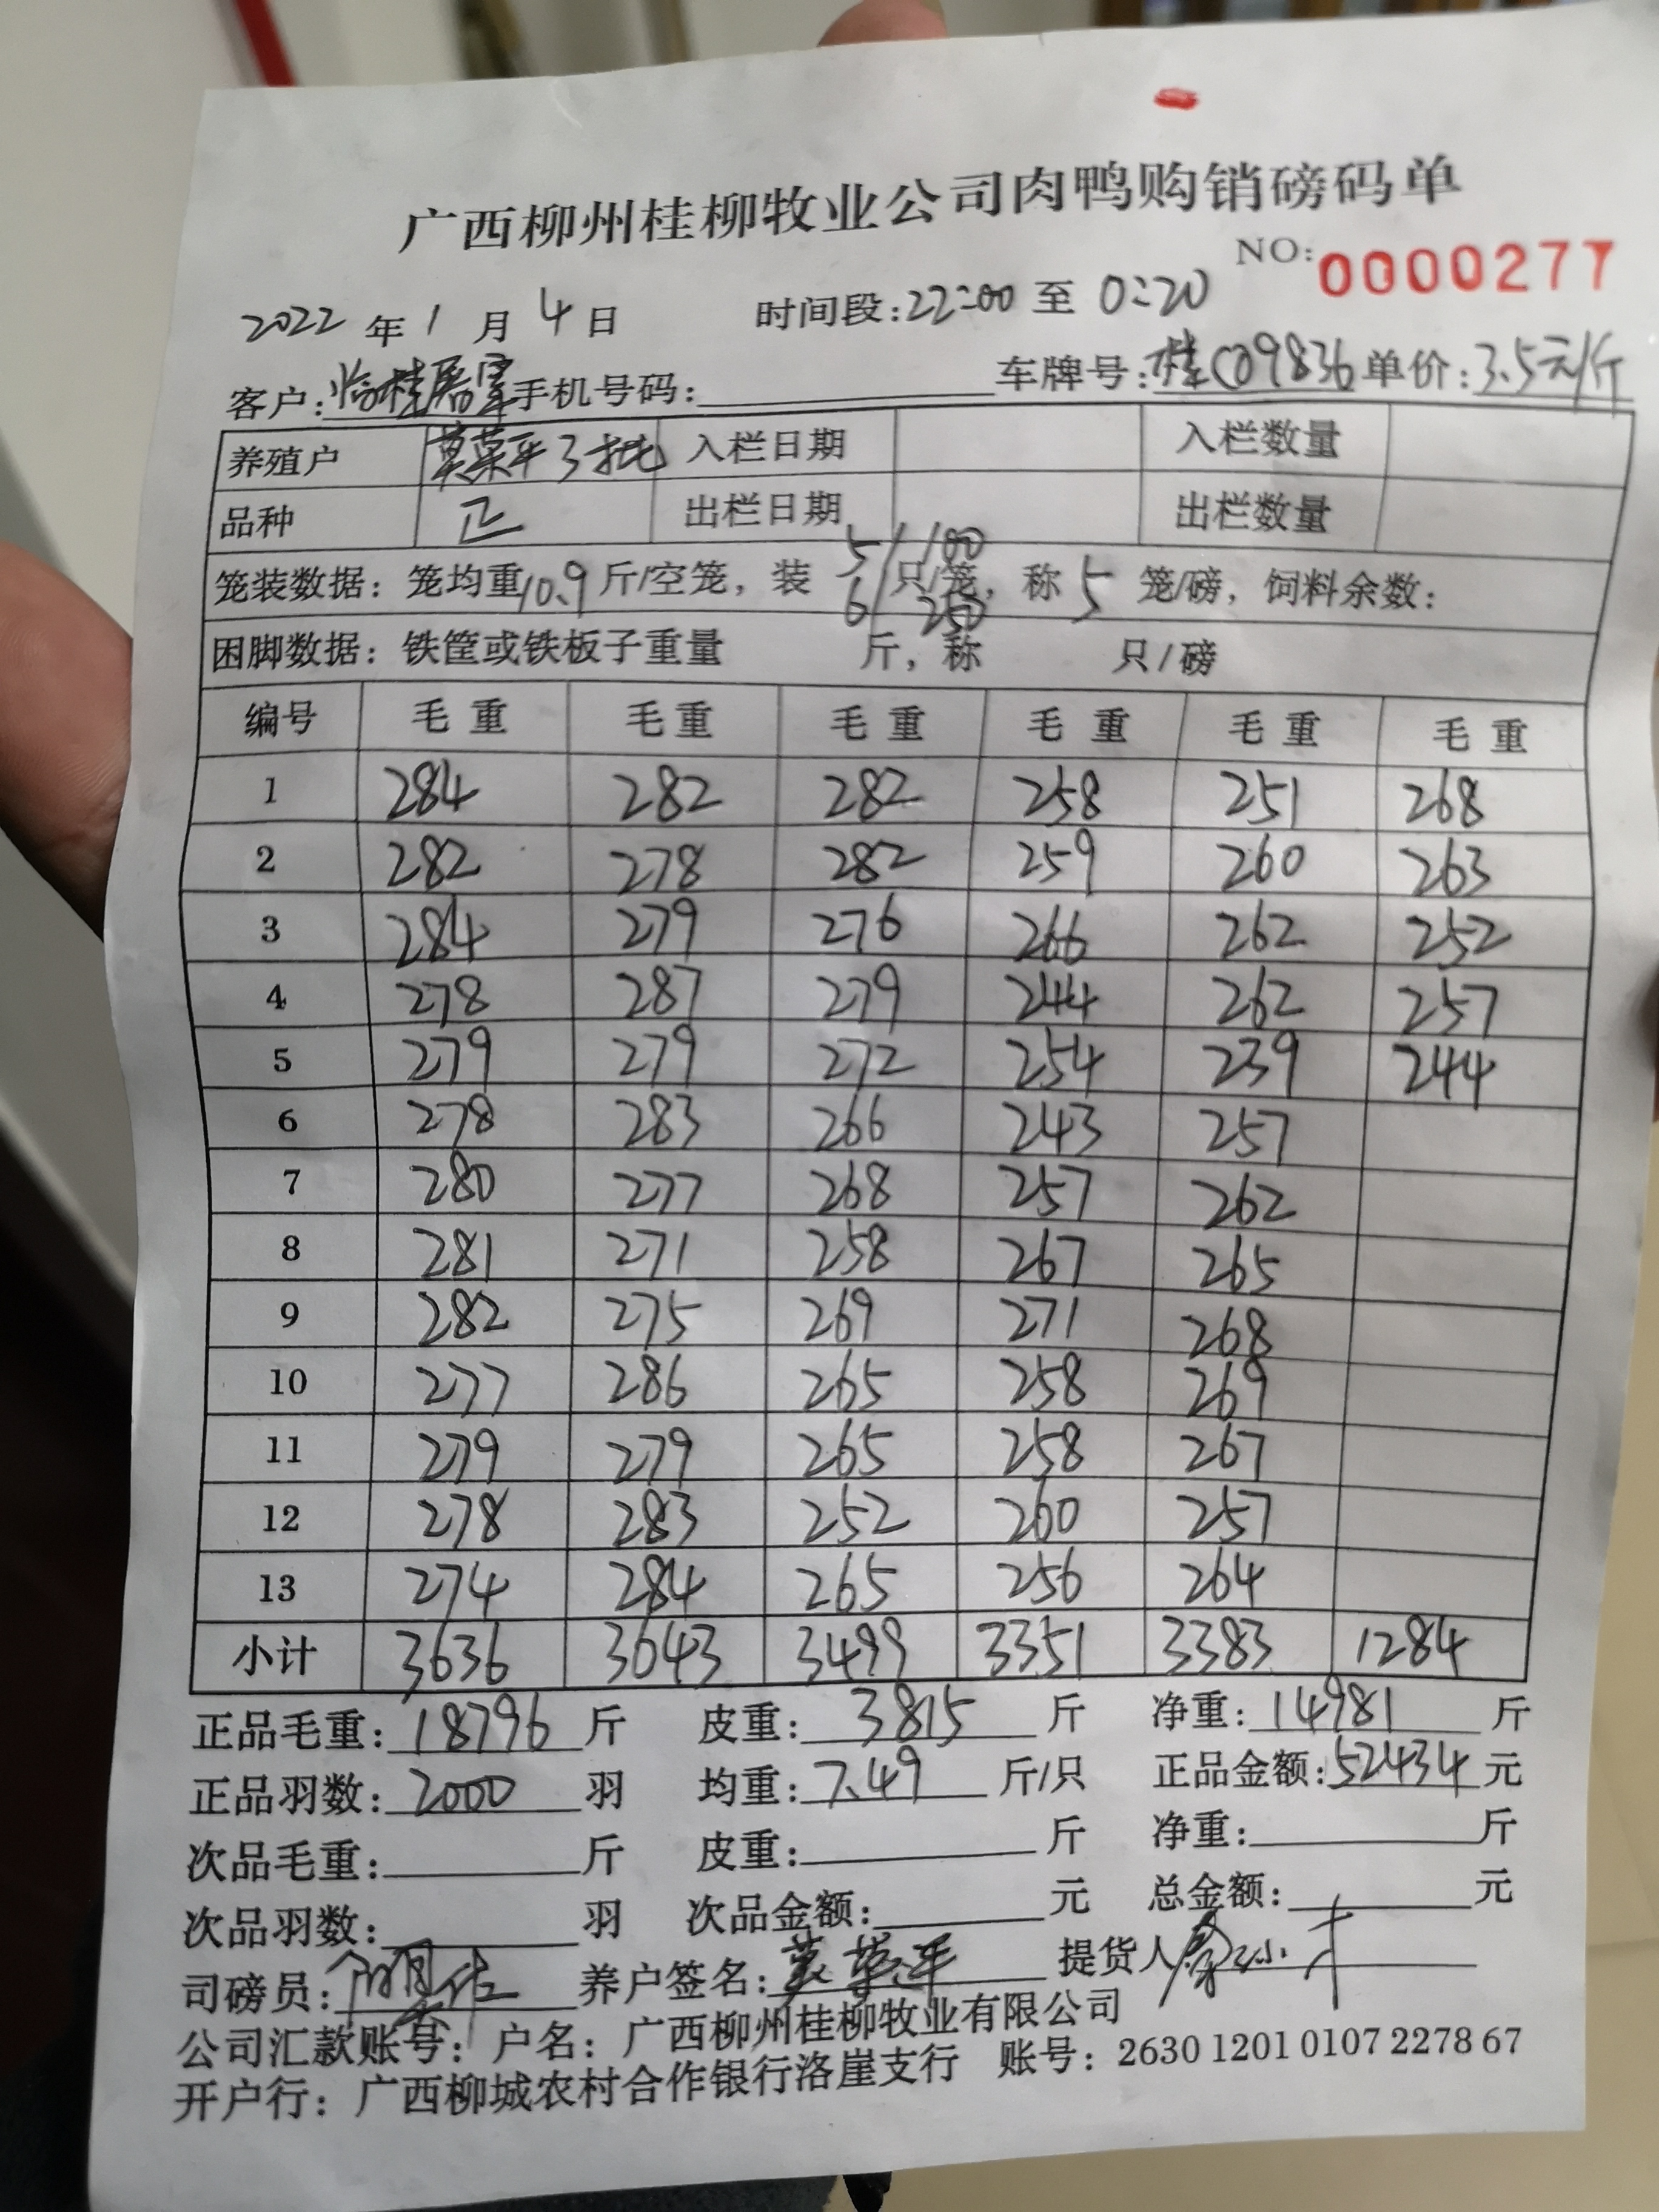 广西柳州桂柳牧业公司肉鸭购销磅码单
NO: 0000277
2022 年 1 月 4 日 时间段: 22:00 至 0:20
客户: 临桂屠宰 手机号码: 车牌号: 桂C09836 单价: 3.5元/斤
养殖户 平3批 入栏日期 入栏数量
品种 正 出栏日期 出栏数量
笼装数据: 笼均重10.9斤/空笼, 装 5/100 6/250 只/笼, 称 5 笼/磅, 饲料余数:
困脚数据: 铁筐或铁板子重量 斤, 称 只/磅
编号 毛重 毛重 毛重 毛重 毛重 毛重
1 284 282 282 258 251 268
2 282 278 282 259 260 263
3 284 279 276 266 262 252
4 278 287 279 244 262 257
5 279 279 272 254 239 244
6 278 283 266 243 257
7 280 277 268 257 262
8 281 271 258 267 265
9 282 275 269 271 268
10 277 286 265 258 269
11 279 279 265 258 267
12 278 283 252 260 257
13 274 284 265 256 264
小计 3636 3643 3499 3351 3383 1284
正品毛重: 18796 斤 皮重: 3815 斤 净重: 14981 斤
正品羽数: 2000 羽 均重: 7.49 斤/只 正品金额: 52434 元
次品毛重: 斤 皮重: 斤 净重: 斤
次品羽数: 羽 次品金额: 元 总金额: 元
司磅员: 养户签名: 提货人
公司汇款账号: 户名: 广西柳州桂柳牧业有限公司
开户行: 广西柳城农村合作银行洛崖支行 账号: 2630 1201 0107 2278 67